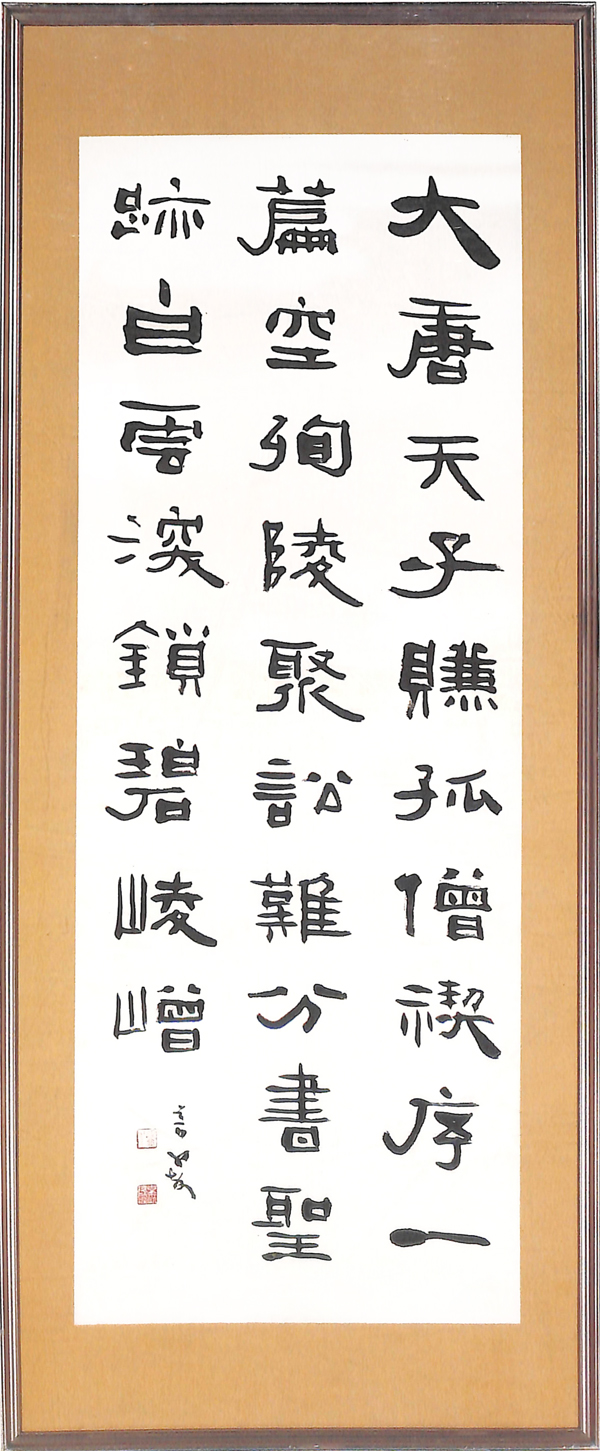 大唐天子賺孤僧禊序一
篇空殉陵聚訟難分書聖
跡白雲深鎖碧崚嶒